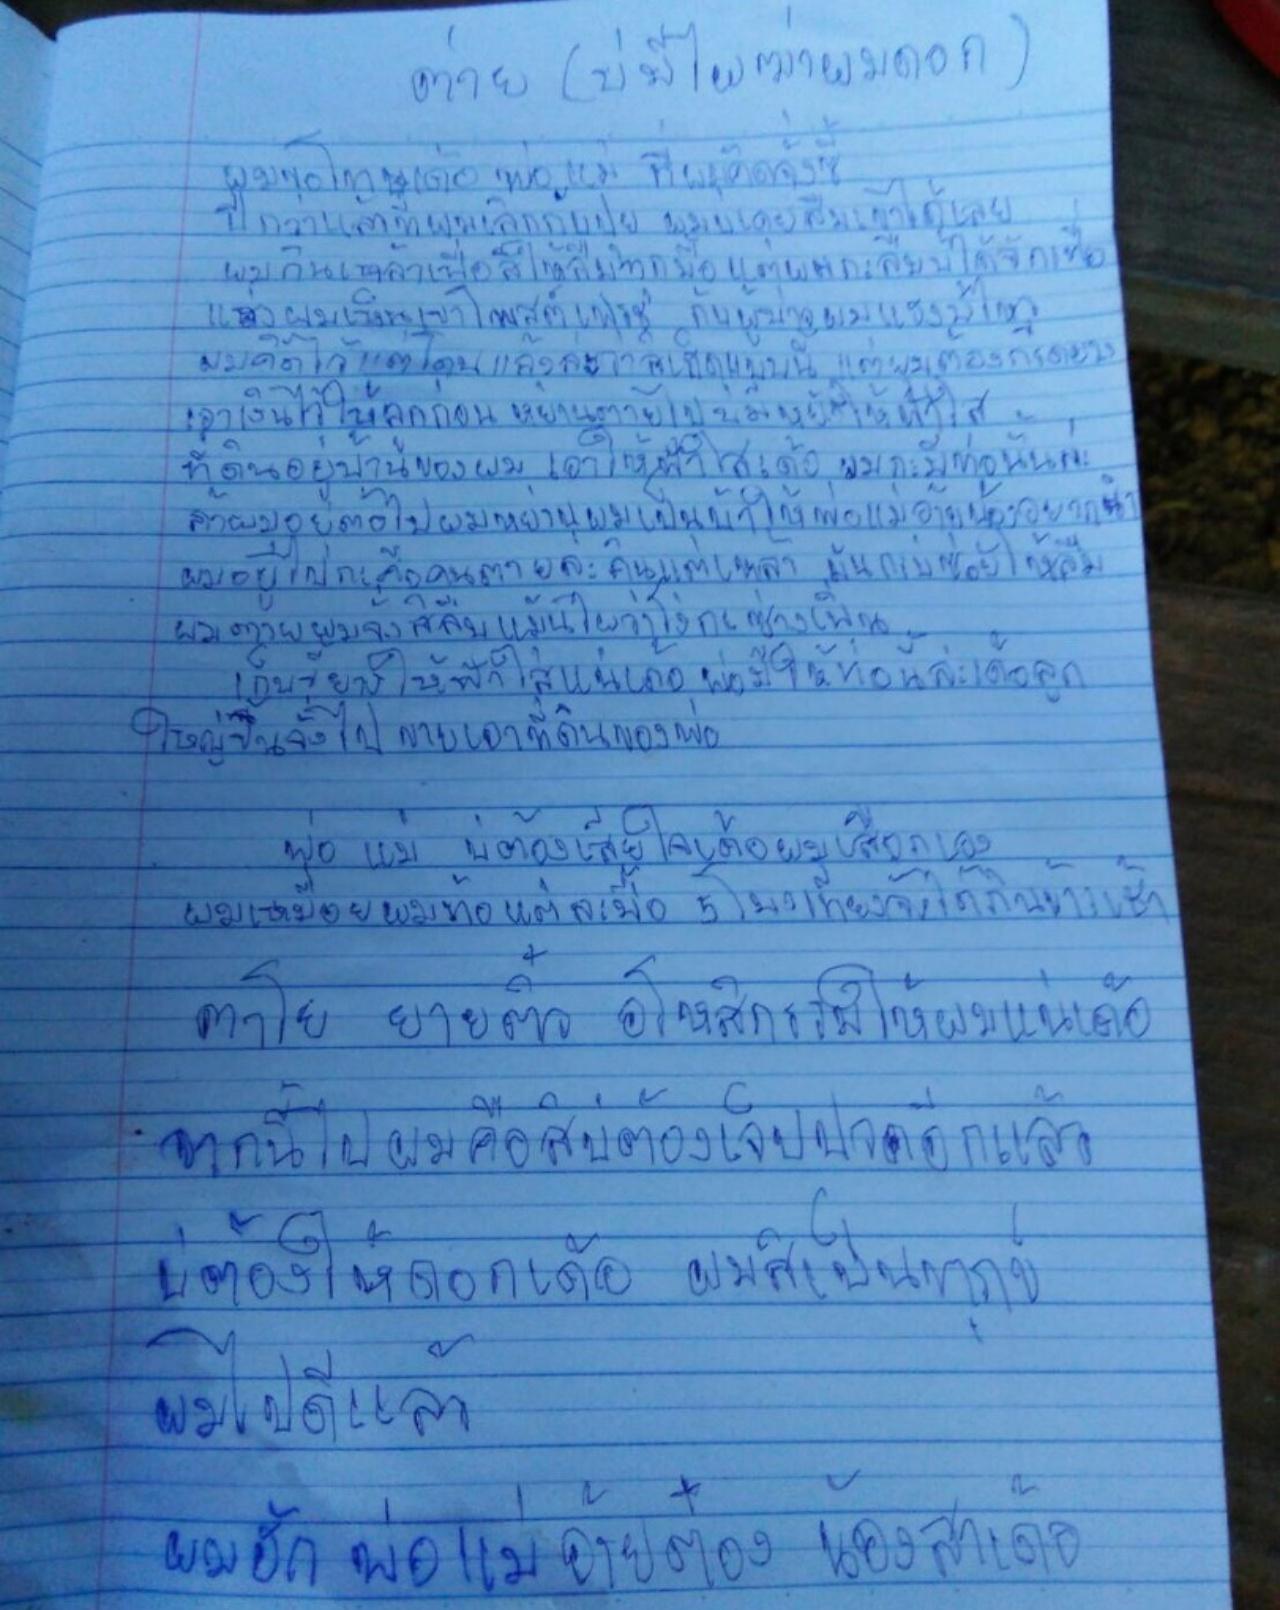 ต่าย (บ่มีไผฆ่าผมดอก)
ผมขอโทษเด้อ พ่อ แม่ ที่ผมคิดจั่งซี้
ปีกว่าแล้วที่ผมเลิกกับ ผมบ่เคยลืมเขาได้เลย
ผมกินเหล้าเพื่อสิให้ลืมทุกมื้อ แต่ผมกะลืมบ่ได้จักเทื่อ
ผมเห็นเขาโพสต์ กับผู้บ่าว ผมแฮงบ่ไหว
ผมคิดไว้แต่โดนแล้วล่ะว่าสิเฮ็ดแบบนี้ แต่ผมต้องกรีดยาง
เอาเงินไว้ให้ลูกก่อน หย่านตายไปบ่มีหยังให้ฟ้าใส
ที่ดินอยู่บ้านของผม เอาให้ฟ้าใสเด้อ ผมกะมีท่อนั้นล่ะ
ถ้าผมอยู่ต่อไปผมหย่านผมเป็นบ้าให้พ่อแม่อ้ายน้องอยาก
ผมอยู่ไปกะคือคนตายล่ะ กินแต่เหล้า มันกะบ่ซ่อยให้ลืม
ผมตายผมจั่งสิลืม แม้นไผว่าโง่กะซ่างเพิ่น
เก็บขี้ยางให้ฟ้าใสแน่เด้อ พ่อมีให้ท่อนี้ล่ะเด้อลูก
ใหญ่ขึ้นจั่งไป ขายเอาที่ดินของพ่อ
พ่อ แม่ บ่ต้องเสียใจเด้อผมเลือกเอง
ผมเหมื่อยผมท้อแต่ละมื้อ 5 โมงเที่ยงจั่งได้กินข้าวเช้า
ตาโย ยายติ๋ว อโหสิกรรมให้ผมแน่เด้อ
จากนี้ไปผมคือสิบ่ต้องเจ็บปวดอีกแล้ว
บ่ต้องไห้ดอกเด้อ ผมสิเป็นทุกข์
ผมไปดีแล้ว
ผมฮัก พ่อ แม่ อ้ายต๋อง น้องสาเด้อ